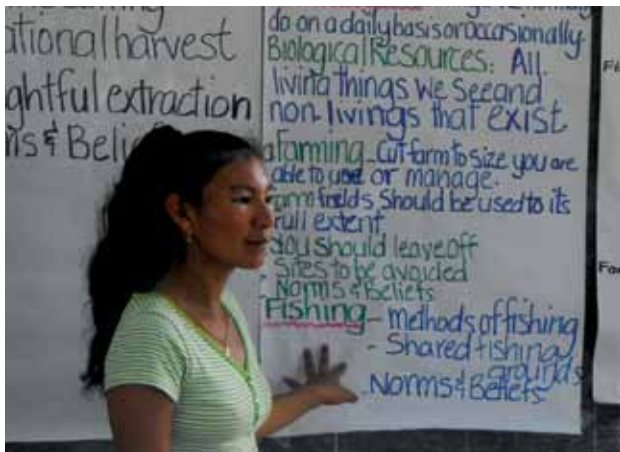 ational harvest
ghtful extraction
ms & Beli
do on a daily basis or occasionally.
Biological Resources: All
living things we see and
non-livings that exist
farming - Cut farm to size you are
able to use or manage.
farm fields should be used to its
full extent
You should leave off
- Sites to be avoided
- Norms & Beliefs
Fishing - methods of fishing
- Shared fishing
grounds
- Norms & Beliefs
Fi
Fo